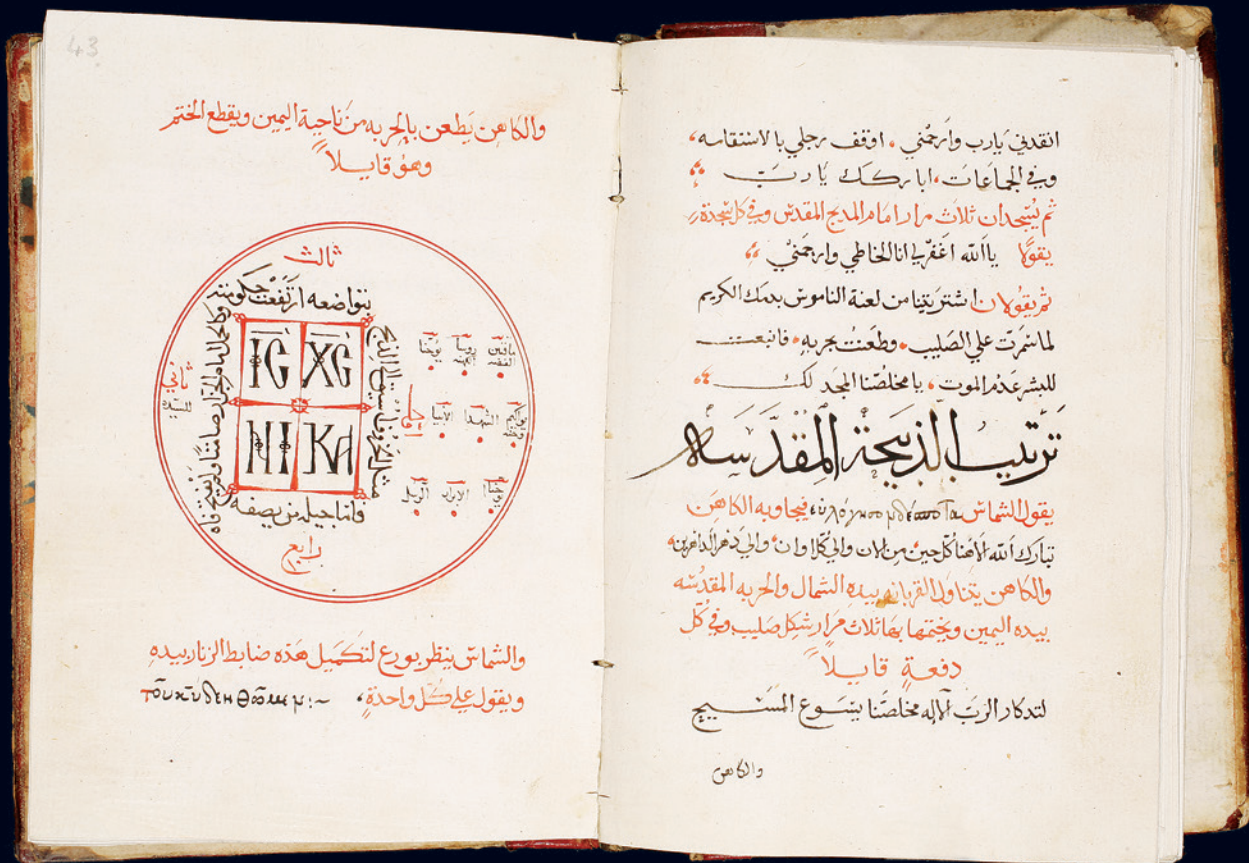 انقدني يا رب وارحمني . اوقف رجلي بالاستقامه،
وفي الجماعات، اباركك يا رب
ثم يسجدان ثلاث مرار امام المدبح المقدس وفي كل سجدة
يقولا يا الله اغفر لي انا الخاطي وارحمني
ثم يقولان اشتريتنا من لعنة الناموس بدمك الكريم
لما سمرت علي الصليب . وطعنت بحربه . فانبعت
للبشر عدم الموت . يا مخلصنا المجد لك
ترتيب الذبيحة المقدسه
يقول الشماس εὐλόγησον δέσποτα فيجاوبه الكاهن
تبارك الله الاهنا كل حين، من الان والي كل اوان، والي دهر الداهرين،
والكاهن يتناول القربانه بيده الشمال والحربه المقدسه
بيده اليمين ويختمها بها ثلاث مرار شكل صليب وفي كل
دفعةٍ قايلاً
لتدكار الرب الاله مخلصنا يسوع المسيح
والكاهن
43
والكاهن يطعن بالحربه من ناحية اليمين ويقطع الختم
وهو قايلاً
ثالث
بتواضعه ارتفعت حكومته
ΙϹ ΧϹ
ΝΙ ΚΑ
مثل الخروف سيق الي الذبح
ثاني
فاما جيله من يصفه
رابع
يوحنا
الانبيا
الشهدا
الرسل
الابرار
والشماس ينظر بورع لتكميل هذه ضابط الزنار بيده
ويقول علي كل واحدة، τοῦ κυρίου δεηθῶμεν :~